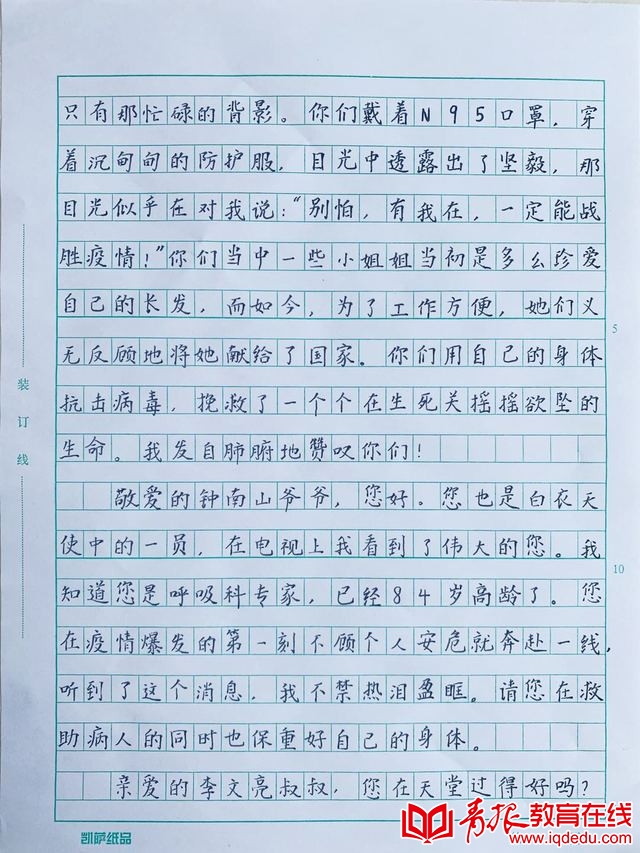 只有那忙碌的背影。你们戴着N95口罩，穿
着沉甸甸的防护服，目光中透露出了坚毅，那
目光似乎在对我说：“别怕，有我在，一定能战
胜疫情！”你们当中一些小姐姐当初是多么珍爱
自己的长发，而如今，为了工作方便，她们义
无反顾地将她献给了国家。你们用自己的身体
抗击病毒，挽救了一个个在生死关摇摇欲坠的
生命。我发自肺腑地赞叹你们！
敬爱的钟南山爷爷，您好。您也是白衣天
使中的一员，在电视上我看到了伟大的您。我
知道您是呼吸科专家，已经84岁高龄了。您
在疫情爆发的第一刻不顾个人安危就奔赴一线，
听到了这个消息，我不禁热泪盈眶。请您在救
助病人的同时也保重好自己的身体。
亲爱的李文亮叔叔，您在天堂过得好吗？
装订线
5
10
凯萨纸品
青报教育在线
www.iqdedu.com